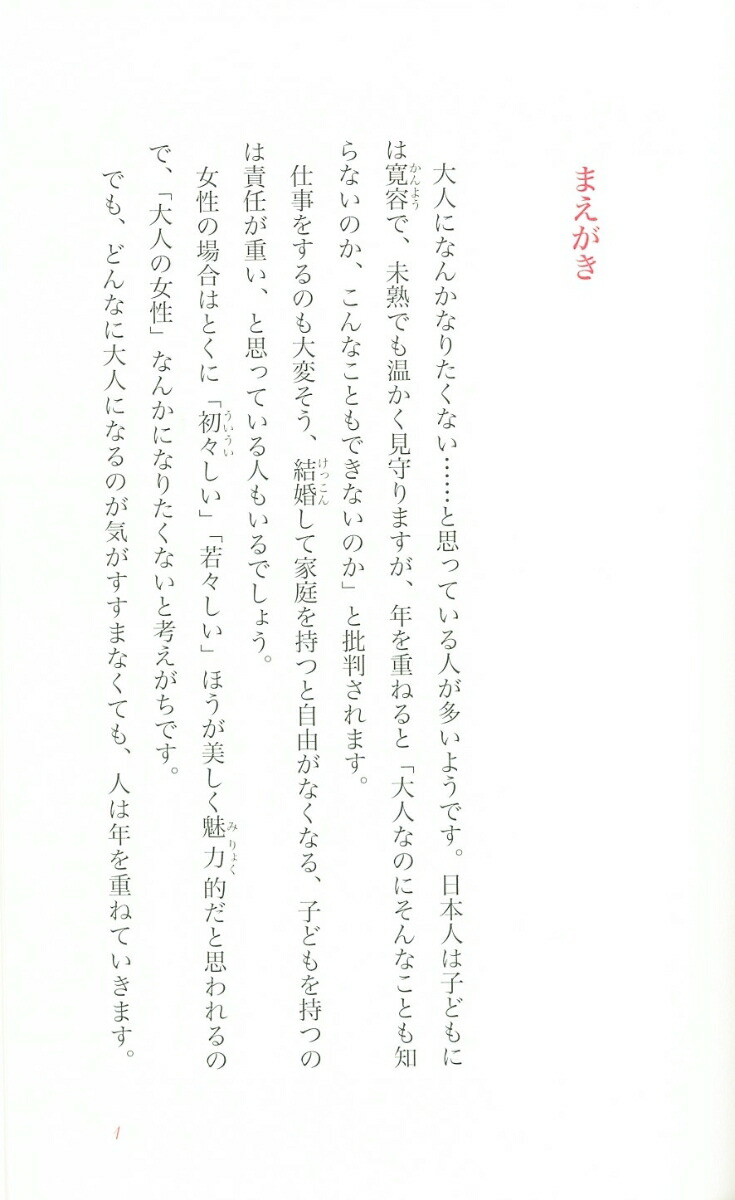 まえがき
大人になんかなりたくない……と思っている人が多いようです。日本人は子どもに
は寛容で、未熟でも温かく見守りますが、年を重ねると「大人なのにそんなことも知
らないのか、こんなこともできないのか」と批判されます。
仕事をするのも大変そう、結婚して家庭を持つと自由がなくなる、子どもを持つの
は責任が重い、と思っている人もいるでしょう。
女性の場合はとくに「初々しい」「若々しい」ほうが美しく魅力的だと思われるの
で、「大人の女性」なんかになりたくないと考えがちです。
でも、どんなに大人になるのが気がすすまなくても、人は年を重ねていきます。
かんよう
けっこん
ういうい
みりょく
1